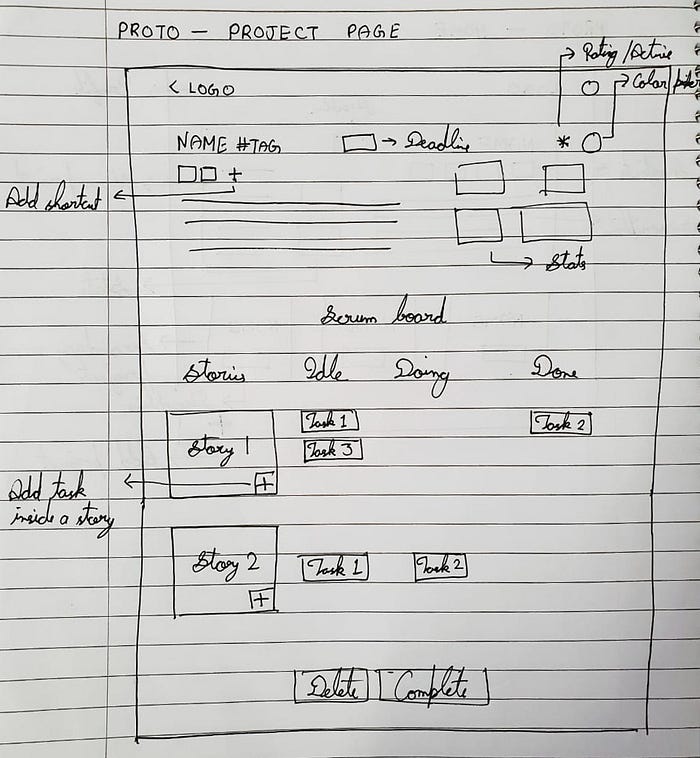 PROTO — PROJECT PAGE
→ Rating/Active
< LOGO
→ Color
NAME #TAG
→ Deadline
*
+
Add shortcut
→ Stats
Scrum board
Stories Idle Doing Done
Task 1 Task 2
Story 1 Task 3
+
Add task
inside a story
Story 2 Task 1 Task 2
+
Delete Complete